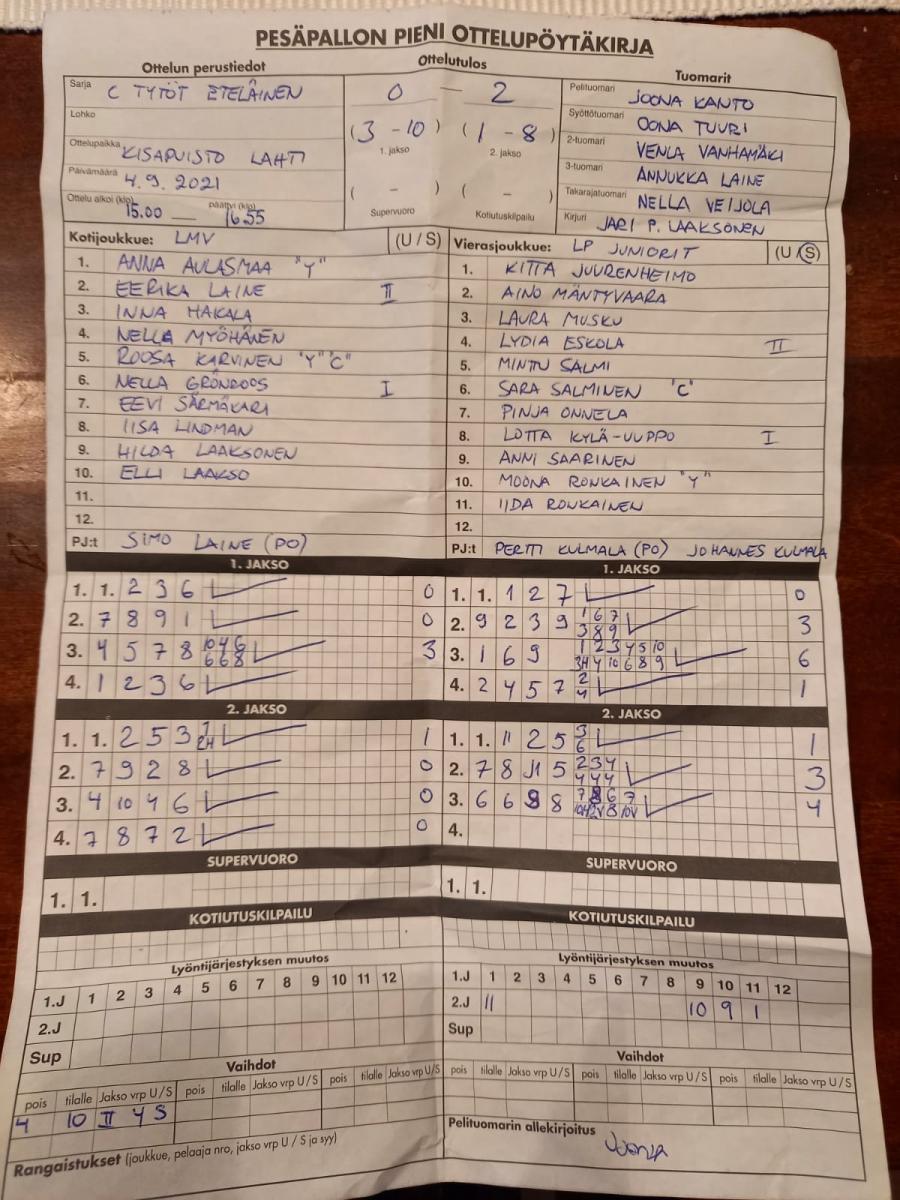 PESÄPALLON PIENI OTTELUPÖYTÄKIRJA
Ottelun perustiedot Ottelutulos Tuomarit
Sarja C TYTÖT ETELÄINEN
Lohko
Ottelupaikka KISAPUISTO LAHTI
Päivämäärä 4.9.2021
Ottelu alkoi (klo) 15.00 — päättyi (klo) 16.55
0 — 2
(3 - 10) (1 - 8)
1. jakso 2. jakso
( - ) ( - )
Supervuoro Kotiutuskilpailu
Pelituomari JOONA KANTO
Syöttötuomari OONA TUURI
2-tuomari VENLA VANHAMÄKI
3-tuomari ANNUKKA LAINE
Takarajatuomari NELLA VEIJOLA
Kirjuri JARI P. LAAKSONEN
Kotijoukkue: LMV (U / S)
1. ANNA AULASMAA "Y"
2. EERIKA LAINE II
3. INNA HAKALA
4. NELLA MYÖHÄNEN
5. ROOSA KARVINEN "Y" "C"
6. NELLA GRÖNROOS I
7. EEVI SÄRMÄKARI
8. IISA LINDMAN
9. HILDA LAAKSONEN
10. ELLI LAAKSO
11.
12.
PJ:t SIMO LAINE (PO)
Vierasjoukkue: LP JUNIORIT (U / S)
1. KITTA JUURENHEIMO
2. AINO MÄNTYVAARA
3. LAURA MUSKU
4. LYDIA ESKOLA II
5. MINTU SALMI
6. SARA SALMINEN "C"
7. PINJA ONNELA
8. LOTTA KYLÄ-UUPPO I
9. ANNI SAARINEN
10. MOONA RONKAINEN "Y"
11. IIDA RONKAINEN
12.
PJ:t PERTTI KULMALA (PO) JOHANNES KULMALA
1. JAKSO
1. 1. 2 3 6 0
2. 7 8 9 1 0
3. 4 5 7 8 10 4 6 6 6 8 3
4. 1 2 3 6
2. JAKSO
1. 1. 2 5 3 1 2H 1
2. 7 9 2 8 0
3. 4 10 4 6 0
4. 7 8 7 2 0
SUPERVUORO
1. 1.
KOTIUTUSKILPAILU
1. JAKSO
1. 1. 1 2 7 0
2. 9 2 3 9 1 6 7 3 8 9 3
3. 1 6 9 1 2 3 4 5 10 3H 4 10 6 8 9 6
4. 2 4 5 7 2 4 1
2. JAKSO
1. 1. 11 2 5 3 6 1
2. 7 8 11 5 2 3 4 4 4 4 3
3. 6 6 8 8 7 8 6 7 4
4.
SUPERVUORO
1. 1.
KOTIUTUSKILPAILU
Lyöntijärjestyksen muutos
1.J 1 2 3 4 5 6 7 8 9 10 11 12
2.J
Sup
Vaihdot
pois tilalle Jakso vrp U / S pois tilalle Jakso vrp U / S pois tilalle Jakso vrp U / S
4 10 II 4 S
Rangaistukset (joukkue, pelaaja nro, jakso vrp U / S ja syy)
Lyöntijärjestyksen muutos
1.J 1 2 3 4 5 6 7 8 9 10 11 12
2.J 11 10 9 1
Sup
Vaihdot
pois tilalle Jakso vrp U / S pois tilalle Jakso vrp U / S pois tilalle Jakso vrp U / S
Pelituomarin allekirjoitus